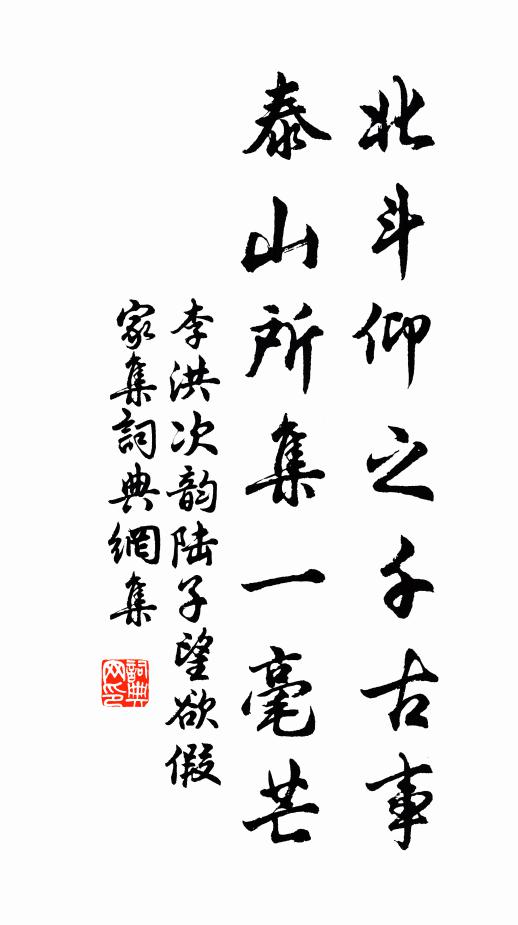 北斗仰之千古事
泰山所集一毫芒
李洪次韵陆子望欲假
家集詞典網集
詞典网印